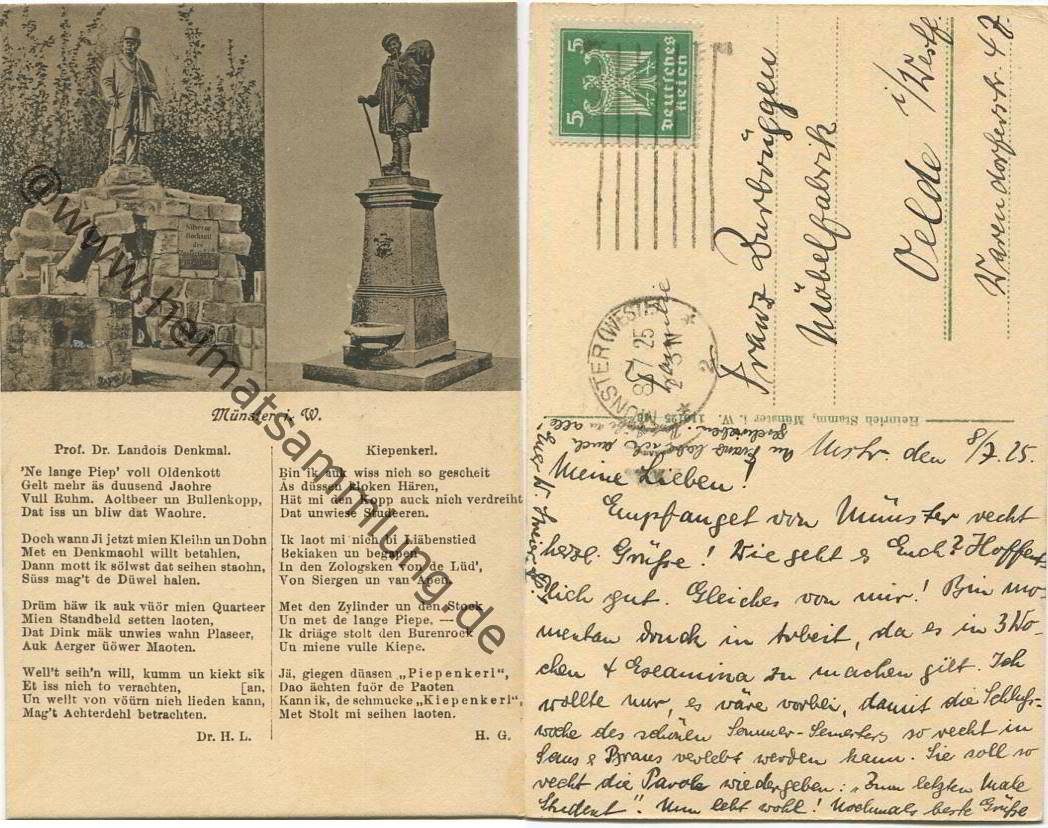 Silberne
Hochzeit
des
Münster i. W.
Prof. Dr. Landois Denkmal.
'Ne lange Piep' voll Oldenkott
Gelt mehr äs duusend Jaohre
Vull Ruhm. Aoltbeer un Bullenkopp,
Dat iss un bliw dat Waohre.
Doch wann Ji jetzt mien Kleihn un Dohn
Met en Denkmaohl willt betahlen,
Dann mott ik sölwst dat seihen staohn,
Süss mag't de Düwel halen.
Drüm häw ik auk vüör mien Quarteer
Mien Standbeld setten laoten,
Dat Dink mäk unwies wahn Plaseer,
Auk Aerger üöwer Maoten.
Well't seih'n will, kumm un kiekt sik
Et iss nich to verachten, [an,
Un wellt von vöürn nich lieden kann,
Mag't Achterdehl betrachten.
Dr. H. L.
Kiepenkerl.
Bin ik auk wiss nich so gescheit
Äs düssen kloken Hären,
Hät mi den Kopp auck nich verdreiht
Dat unwiese Studeeren.
Ik laot mi nich in Liäbenstied
Bekiaken un begapen
In den Zologsken von de Lüd',
Von Siergen un van Apen.
Met den Zylinder un den Stock
Un met de lange Piepe, —
Ik driäge stolt den Burenrock
Un miene vulle Kiepe.
Jä, giegen düasen „Piepenkerl",
Dao ächten fuör de Paoten
Kann ik, de schmucke „Kiepenkerl",
Met Stolt mi seihen laoten.
H. G.
@www.heimatsammlung.de
5 5
Deutsches
Reich
MÜNSTER (WESTF)
8.7.25
2-3 N
2
Familie
Franz Durbrüggen
Möbelfabrik
Oelde i/Westf
Warendorferstr. 47.
Heinrich Stamm, Münster i. W.
An Franz habe ich auch
geschrieben.
Mstr. den 8/7.25.
Meine Lieben!
Empfanget von Münster recht
herzl. Grüße! Wie geht es Euch? Hoffent-
lich gut. Gleiches von mir! Bin mo-
mentan druck in Arbeit, da es in 3 Wo-
chen 4 Examina zu machen gilt. Ich
wollte nur, es wäre vorbei, damit die Schluß-
woche des schönen Sommer-Semesters so recht in
Saus & Braus verlebt werden kann. Sie soll so
recht die Parole wiedergeben: „Zum letzten Male
Student". Nun lebt wohl! Nochmals beste Grüße